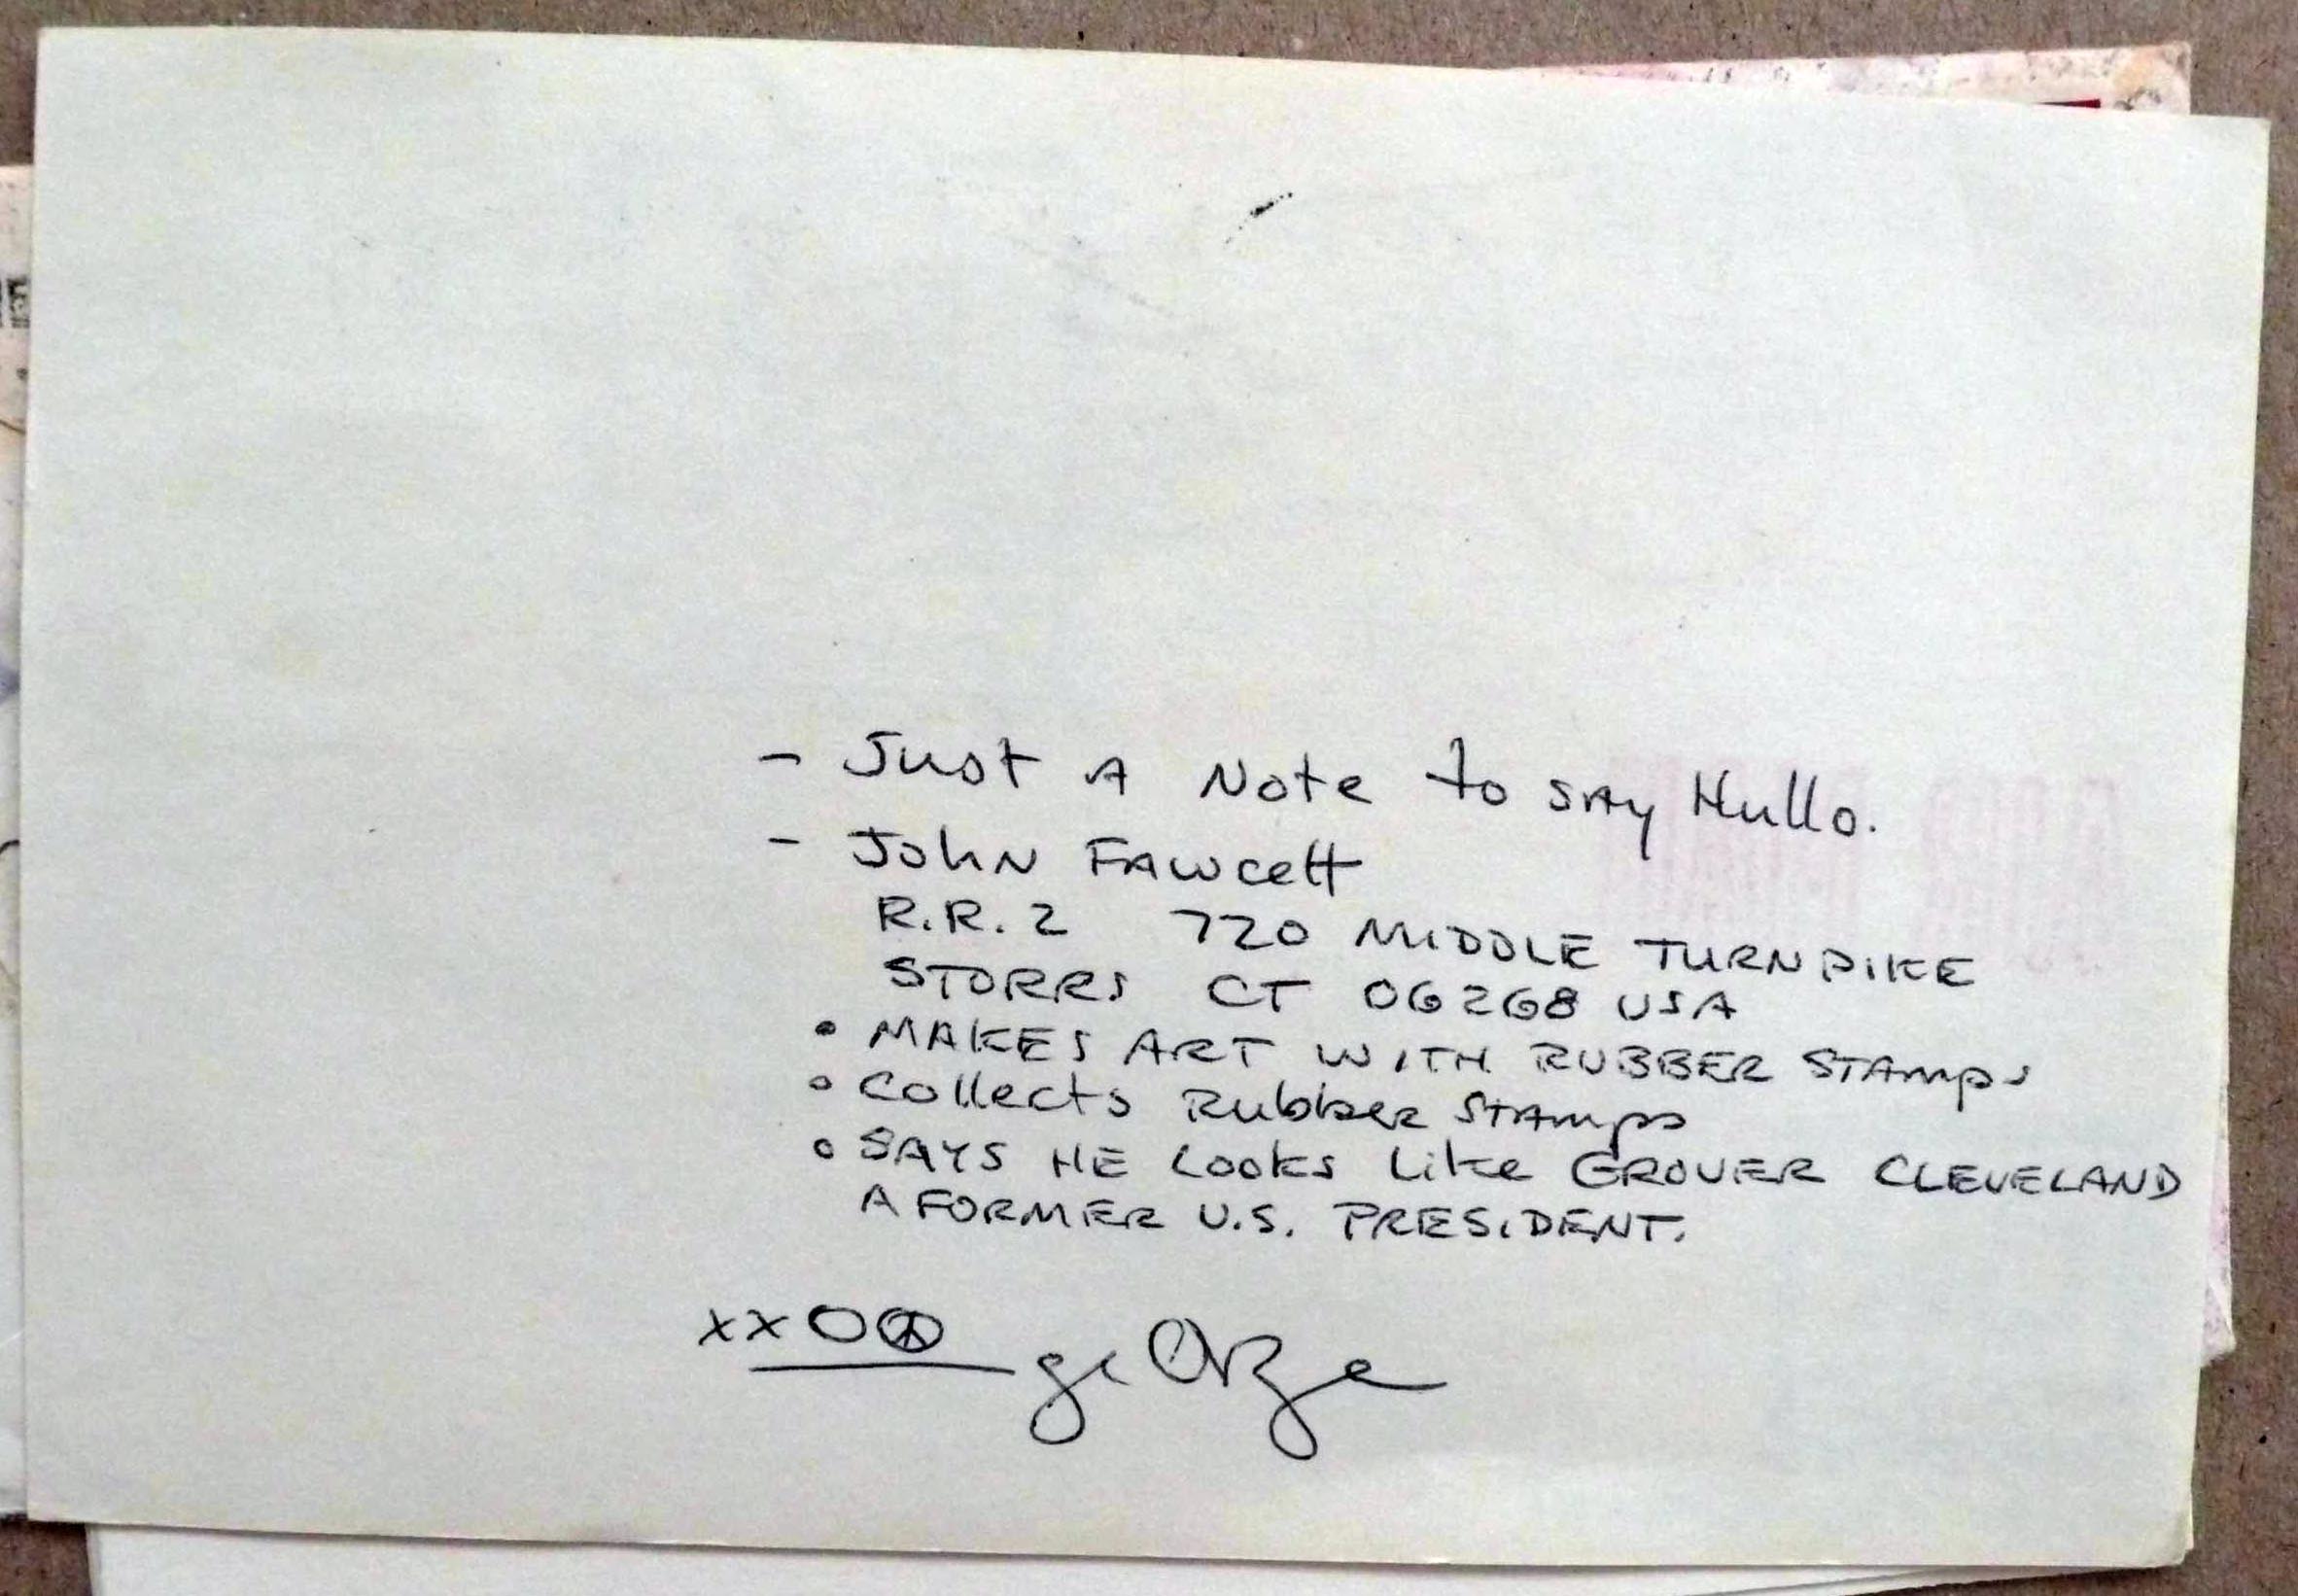 - Just A Note to SAY Hullo.
- John FAWcett
R.R. 2 720 MIDDLE TURNPIKE
STORRS CT 06268 USA
• MAKES ART WITH RUBBER STAMPS
• Collects Rubber STAMPS
• SAYS HE LOOKS Like GROVER CLEVELAND
A FORMER U.S. PRESIDENT.
xxO☮
geOrge